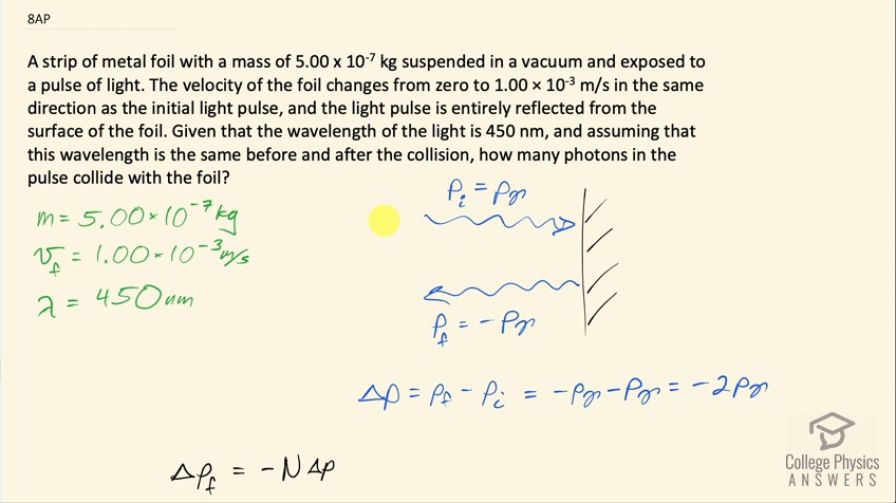 8AP
A strip of metal foil with a mass of 5.00 x 10⁻⁷ kg suspended in a vacuum and exposed to
a pulse of light. The velocity of the foil changes from zero to 1.00 × 10⁻³ m/s in the same
direction as the initial light pulse, and the light pulse is entirely reflected from the
surface of the foil. Given that the wavelength of the light is 450 nm, and assuming that
this wavelength is the same before and after the collision, how many photons in the
pulse collide with the foil?
m = 5.00 × 10⁻⁷ kg
v_f = 1.00 × 10⁻³ m/s
λ = 450 nm
P_i = P_γ
P_f = - P_γ
ΔP = P_f - P_i = - P_γ - P_γ = - 2 P_γ
ΔP_f = - N ΔP
College Physics
ANSWERS